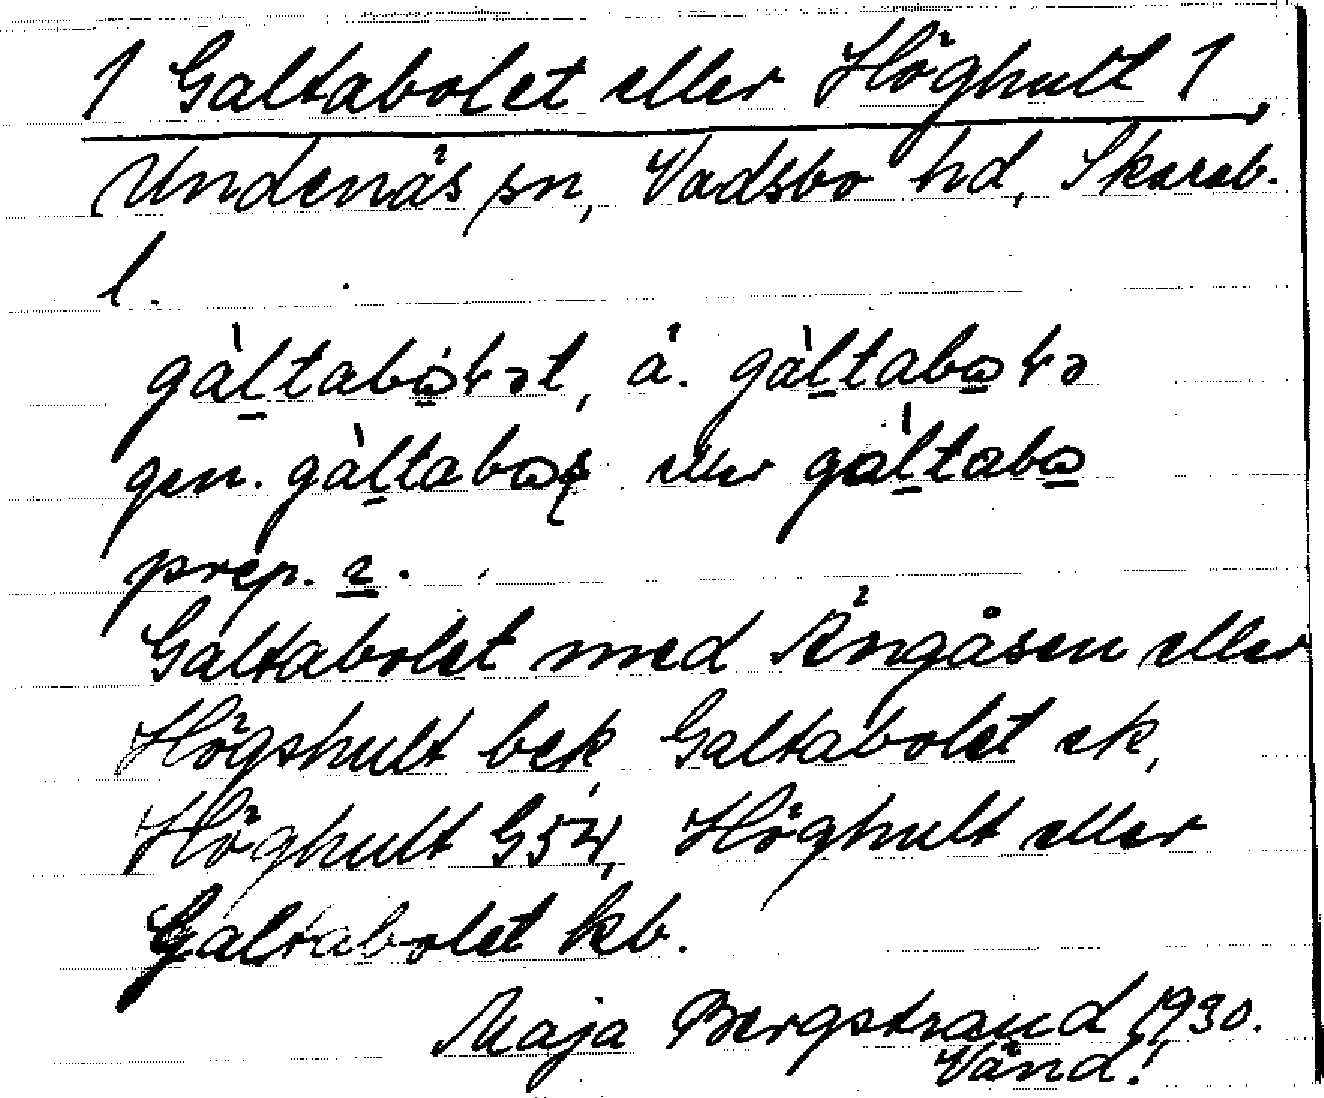 1 Galtabolet eller Höghult 1,
Undenäs sn, Vadsbo hd, Skarab.
l.
gàltabɷ́ɫət, ä. gàltabɷɫə
gen. gàltabɷs eller gàltabɷ
prep. 2.
Galtabolet med Ängåsen eller
Högshult bek, Galtabolet ek,
Höghult G54, Höghult eller
Galtabolet kb.
Maja Bergstrand 1930.
Vänd!